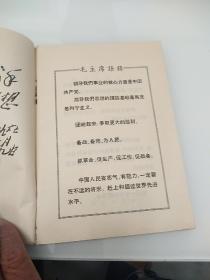 毛主席语录
领导我们事业的核心力量是中国
共产党。
指导我们思想的理论基础是马克思
列宁主义。
团结起来，争取更大的胜利。
备战、备荒、为人民。
抓革命，促生产，促工作，促战备。
中国人民有志气，有能力，一定要
在不远的将来，赶上和超过世界先进
水平。